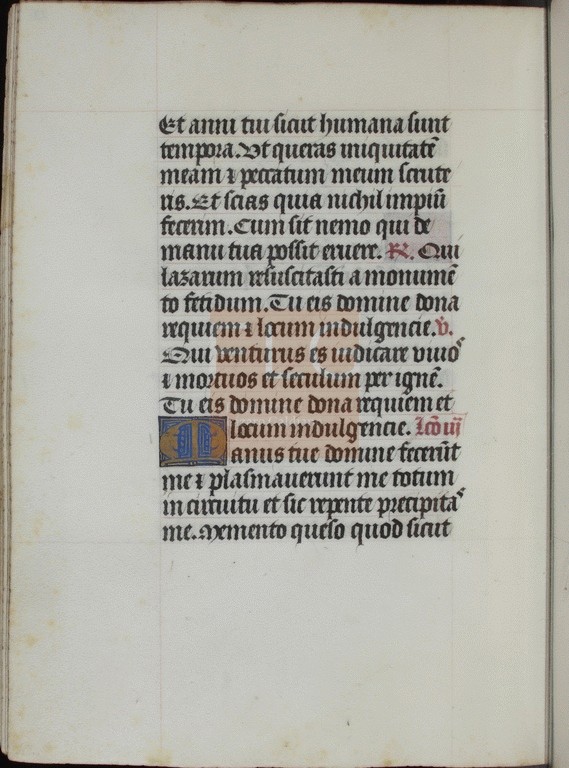 Et anni tui sicut humana sunt
tempora. Vt queras iniquitatē
meam ⁊ peccatum meum scrute
ris. Et scias quia nichil impiū
fecerim. Cum sit nemo qui de
manu tua possit eruere. R̸. Qui
lazarum resuscitasti a monumē
to fetidum. Tu eis domine dona
requiem ⁊ locum indulgencie. v̇.
Qui venturus es iudicare viuoˢ
⁊ mortuos et seculum per ignē.
Tu eis domine dona requiem et
locum indulgencie. lc̄o iij
Manus tue domine fecerūt
me ⁊ plasmauerunt me totum
in circuitu et sic repente precipitaˢ
me. Memento queso quod sicut